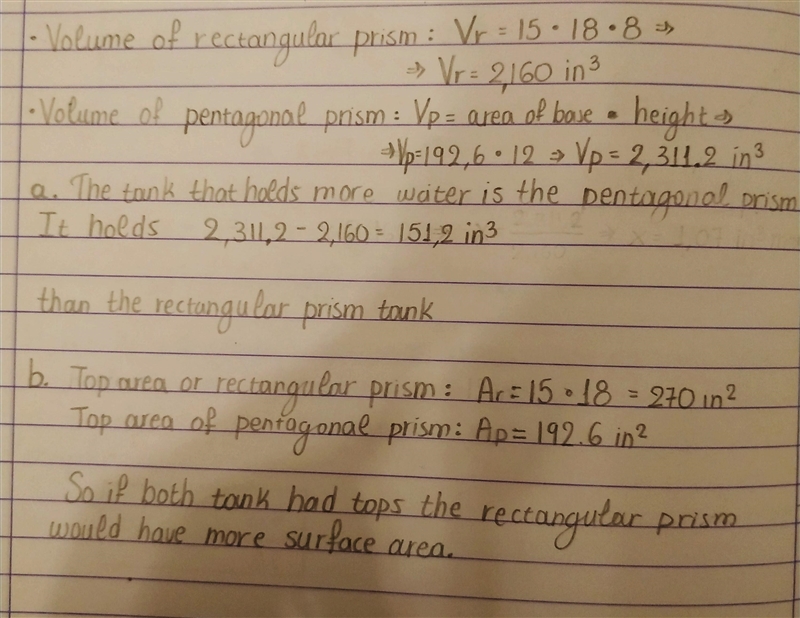 · Volume of rectangular prism: Vr = 15 · 18 · 8 ⇒
⇒ Vr = 2,160 in³
· Volume of pentagonal prism: Vp = area of base · height ⇒
⇒ Vp = 192,6 · 12 ⇒ Vp = 2,311.2 in³
a. The tank that holds more water is the pentagonal prism
It holds 2,311,2 - 2,160 = 151,2 in³
than the rectangular prism tank
b. Top area or rectangular prism: Ar = 15 · 18 = 270 in²
Top area of pentagonal prism: Ap = 192.6 in²
So if both tank had tops the rectangular prism
would have more surface area.